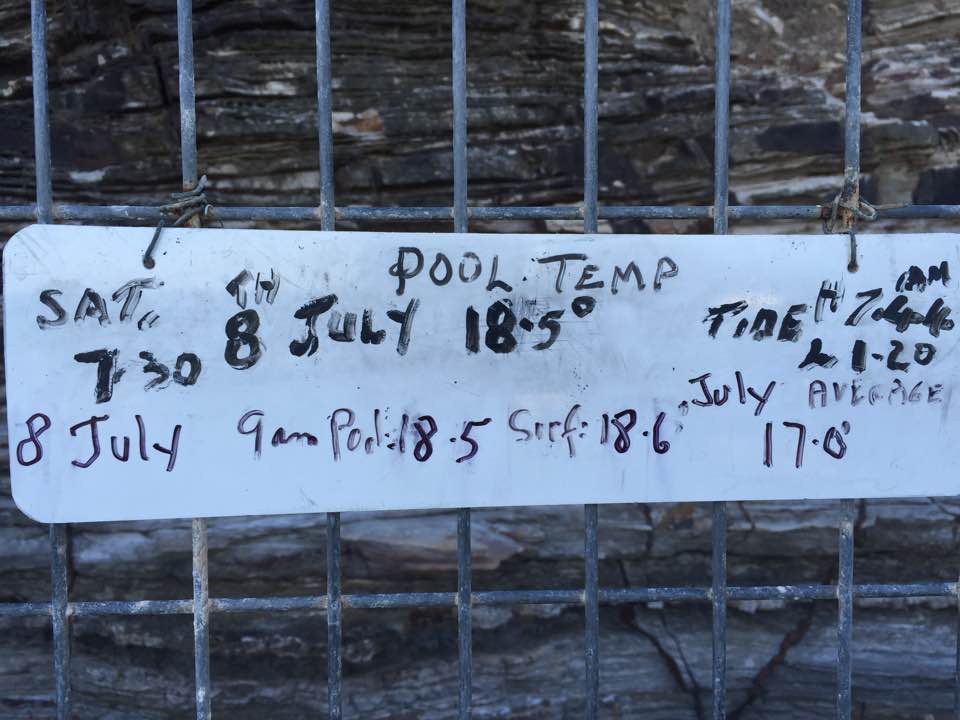 POOL TEMP
SAT. 8TH JULY 18.5° TIDE H 7.44 AM
7.30 L 1.20
July AVERAGE
8 July 9am Pool: 18.5 Surf: 18.6° 17.0°